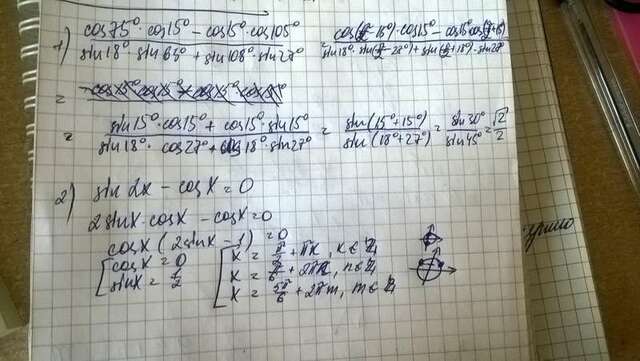 1) (cos75°·cos15° − cos15°·cos105°)/(sin18°·sin63° + sin108°·sin27°) = (cos(π/2−15°)·cos15° − cos15°·cos(π/2+15°))/(sin18°·sin(π/2−27°) + sin(π/2+18°)·sin27°)
=
= (sin15°·cos15° + cos15°·sin15°)/(sin18°·cos27° + cos18°·sin27°) = sin(15°+15°)/sin(18°+27°) = sin30°/sin45° = √2/2
2) sin2x − cosx = 0
2sinx·cosx − cosx = 0
cosx(2sinx − 1) = 0
[cosx = 0 [x = π/2 + πk, k∈Z
sinx = 1/2 x = π/6 + 2πn, n∈Z
x = 5π/6 + 2πm, m∈Z